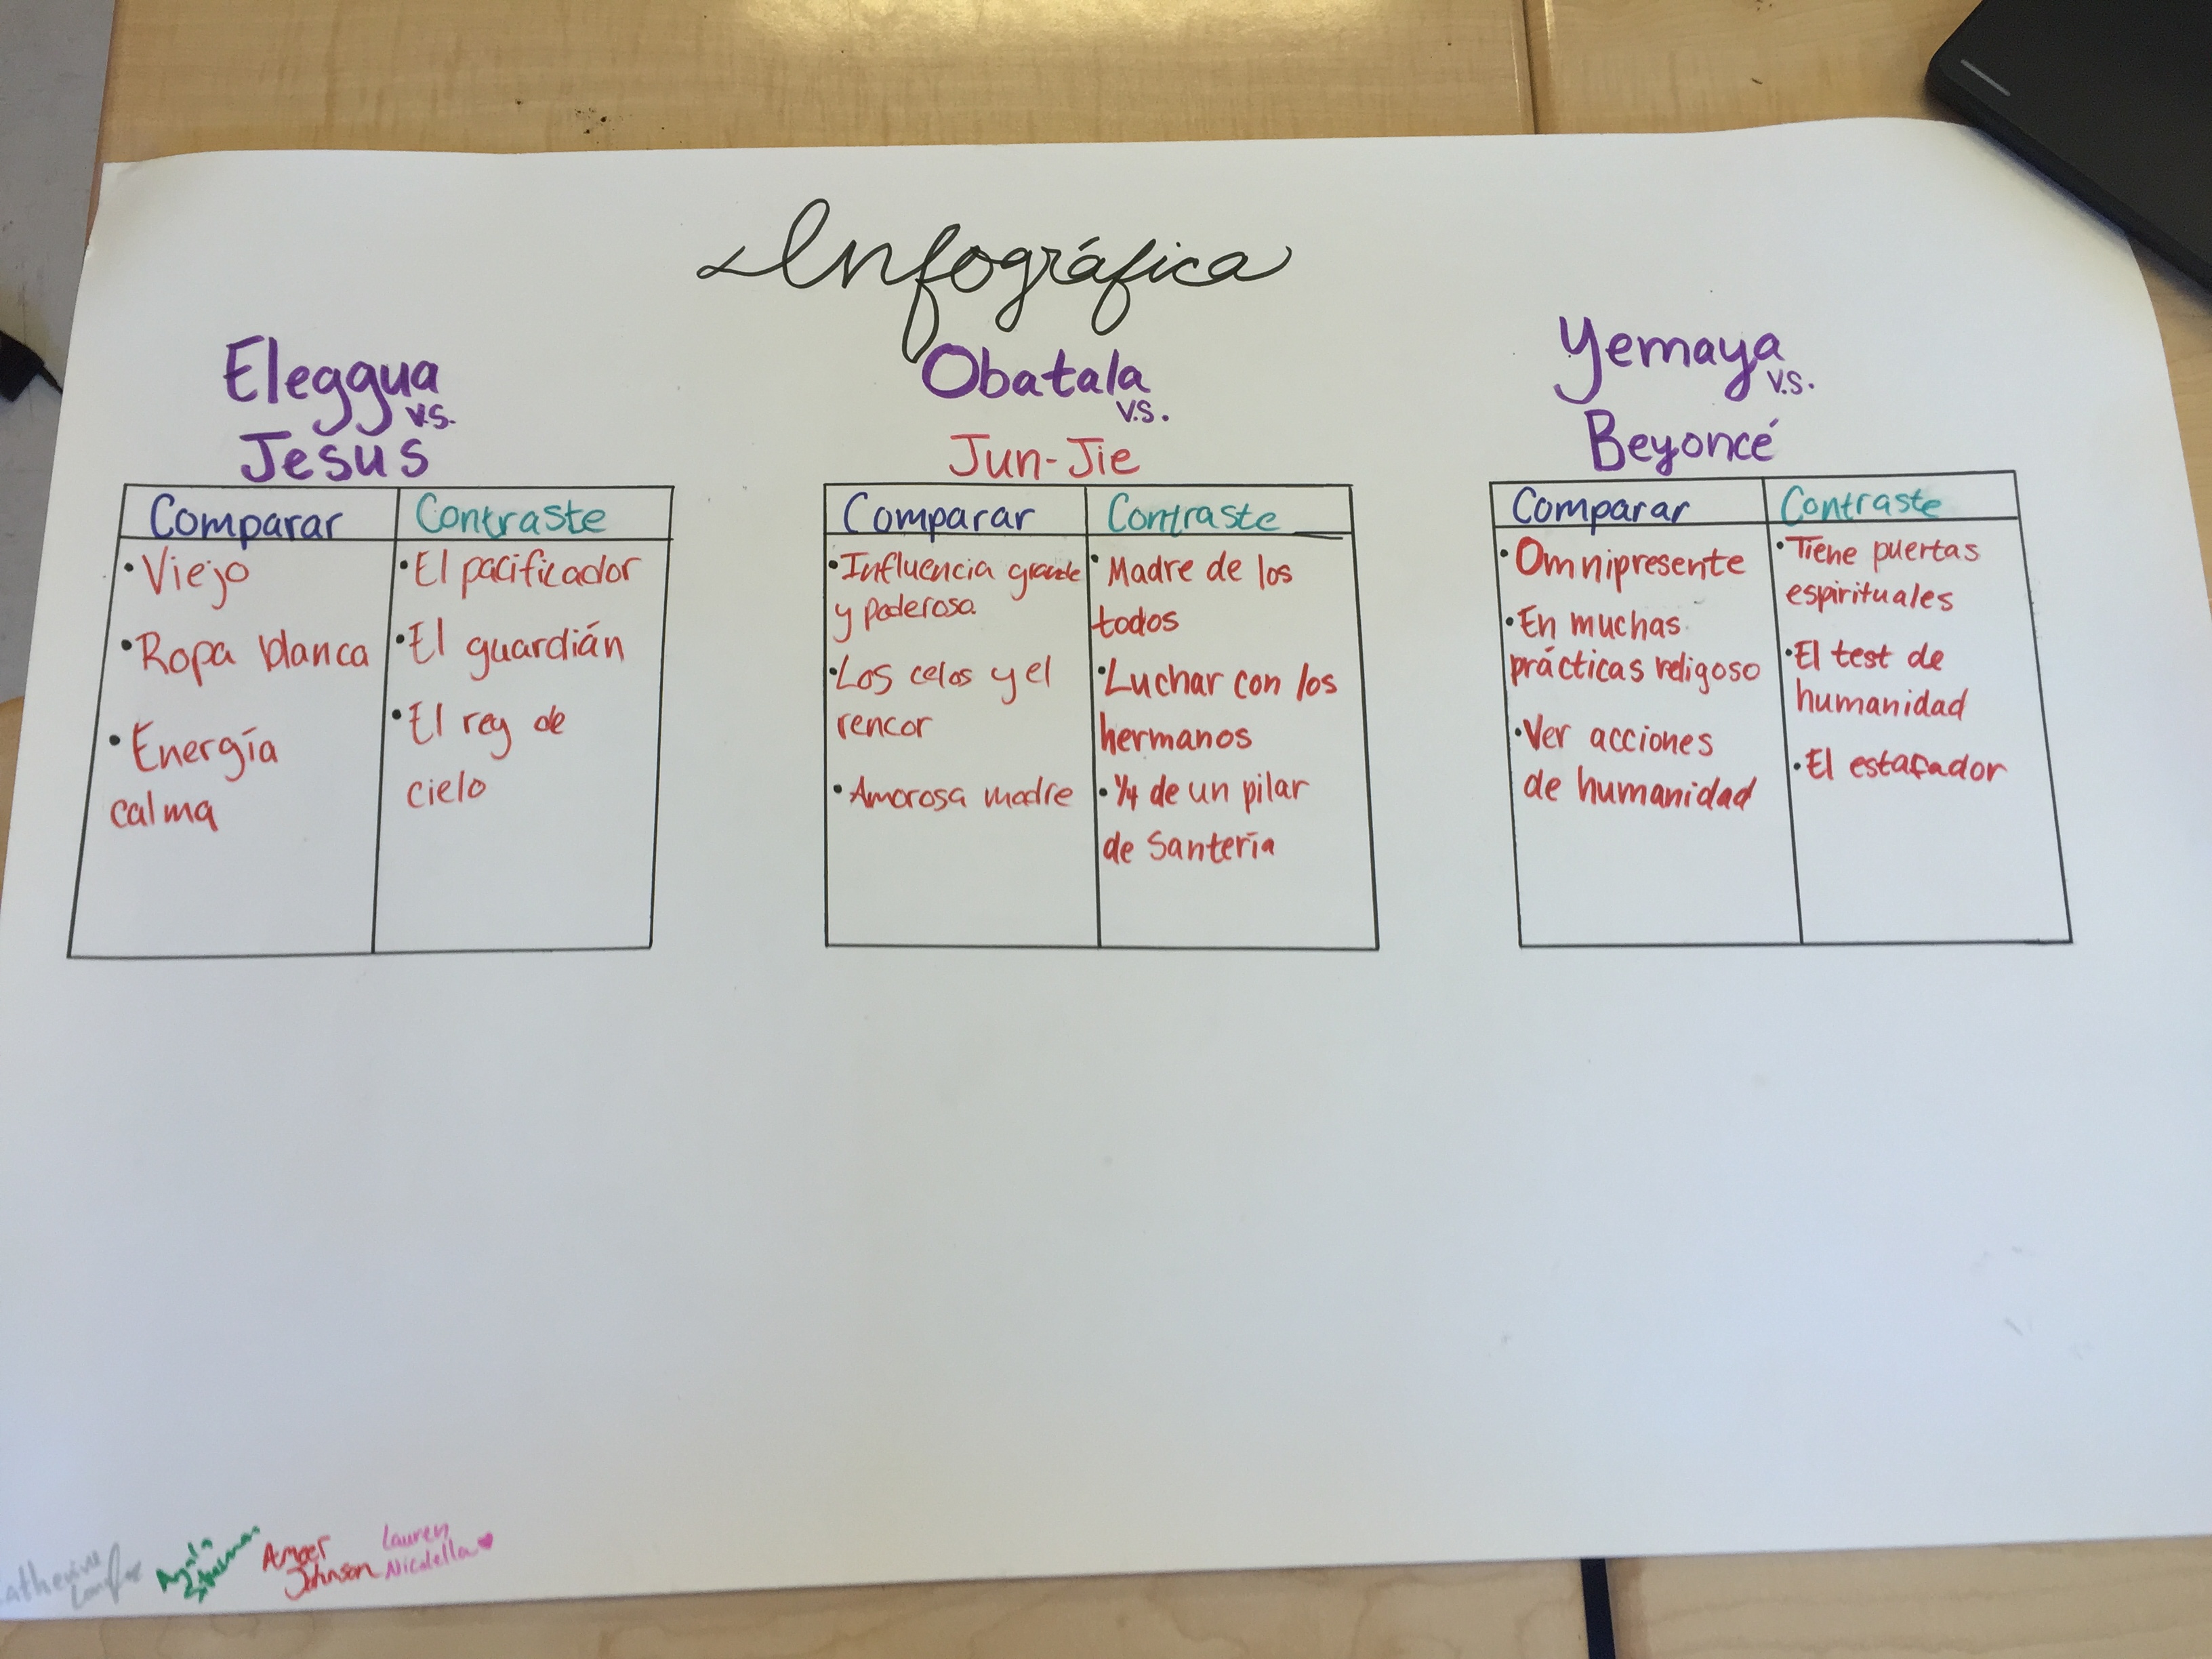 Infográfica
Eleggua
v.s.
Jesus
Comparar
Contraste
• Viejo
• Ropa blanca
• Energía
calma
• El pacificador
• El guardián
• El rey de
cielo
Obatala
v.s.
Jun-Jie
Comparar
Contraste
• Influencia grande
y poderosa
• Los celos y el
rencor
• Amorosa madre
• Madre de los
todos
• Luchar con los
hermanos
• 1/4 de un pilar
de Santería
Yemaya
v.s.
Beyoncé
Comparar
Contraste
• Omnipresente
• En muchas
prácticas religoso
• Ver acciones
de humanidad
• Tiene puertas
espirituales
• El test de
humanidad
• El estafador
Ameer
Johnson
Lauren
Nicolella